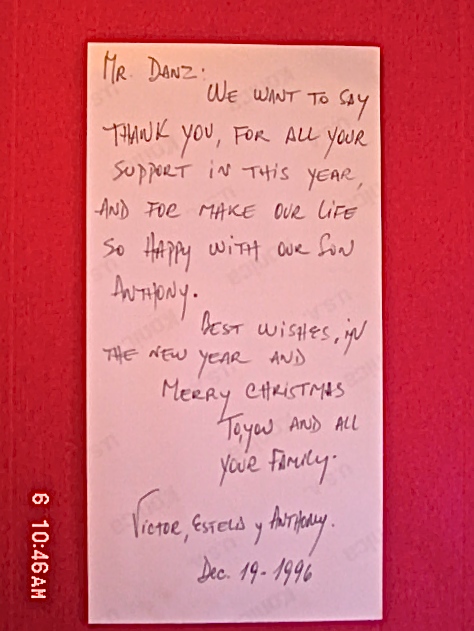 MR. DANZ:
WE WANT TO SAY
THANK YOU, FOR ALL YOUR
SUPPORT IN THIS YEAR,
AND FOR MAKE OUR LIFE
SO HAPPY WITH OUR SON
ANTHONY.
BEST WISHES, IN
THE NEW YEAR AND
MERRY CHRISTMAS
TO, YOU AND ALL
YOUR FAMILY.
VICTOR, ESTELA y ANTHONY.
Dec. 19-1996
6 10:46AM